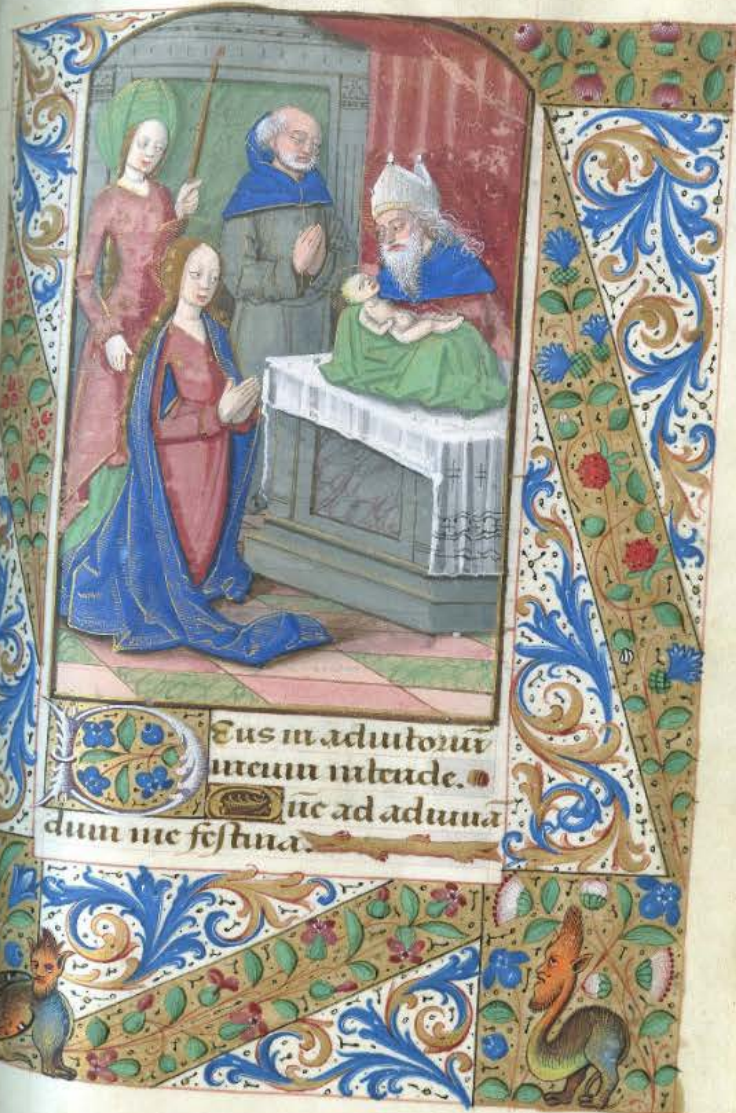 Deus in adiutoriū
meum intende.
Dñe ad adiuuā
dum me festina.